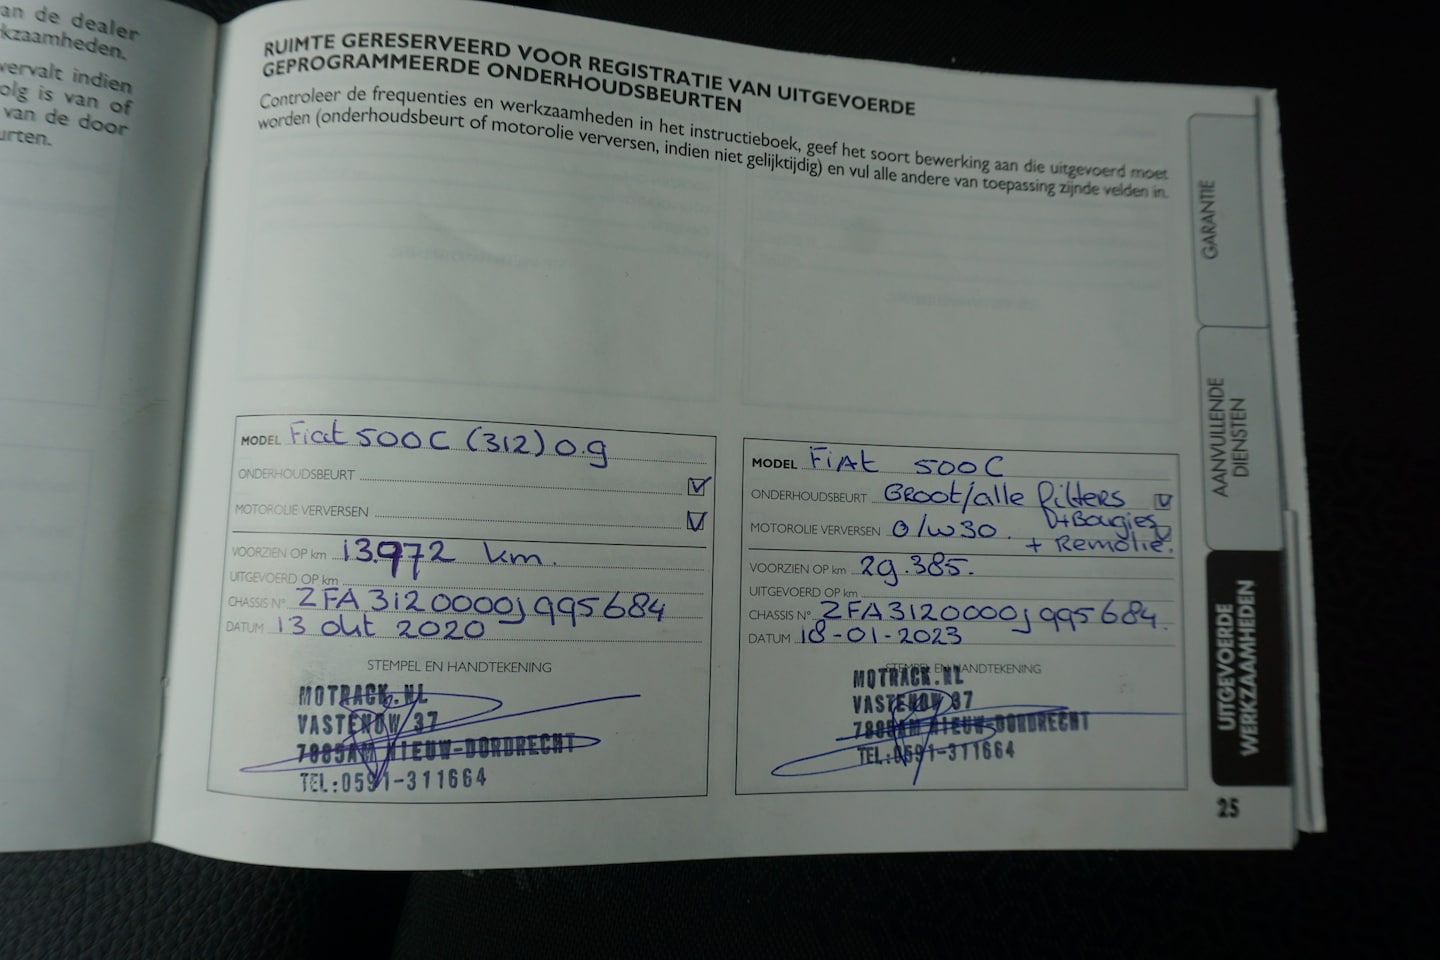 an de dealer
kzaamheden.
vervalt indien
olg is van of
van de door
urten.
RUIMTE GERESERVEERD VOOR REGISTRATIE VAN UITGEVOERDE
GEPROGRAMMEERDE ONDERHOUDSBEURTEN
Controleer de frequenties en werkzaamheden in het instructieboek, geef het soort bewerking aan die uitgevoerd moet
worden (onderhoudsbeurt of motorolie verversen, indien niet gelijktijdig) en vul alle andere van toepassing zijnde velden in.
MODEL Fiat 500C (312) 0.9
ONDERHOUDSBEURT
MOTOROLIE VERVERSEN
VOORZIEN OP km 13.972 km.
UITGEVOERD OP km
CHASSIS N° ZFA3120000J995684
DATUM 13 okt 2020
STEMPEL EN HANDTEKENING
MOTRACK.NL
VASTENOW 37
7885AM NIEUW-DORDRECHT
TEL:0591-311664
MODEL FiAt 500C
ONDERHOUDSBEURT Groot/alle filters
MOTOROLIE VERVERSEN 0/w30. + Bougies
+ Remolie.
VOORZIEN OP km 29.385.
UITGEVOERD OP km
CHASSIS N° ZFA3120000J995684.
DATUM 18-01-2023
STEMPEL EN HANDTEKENING
MOTRACK.NL
VASTENOW 37
7885AM NIEUW-DORDRECHT
TEL:0591-311664
GARANTIE
AANVULLENDE
DIENSTEN
UITGEVOERDE
WERKZAAMHEDEN
25